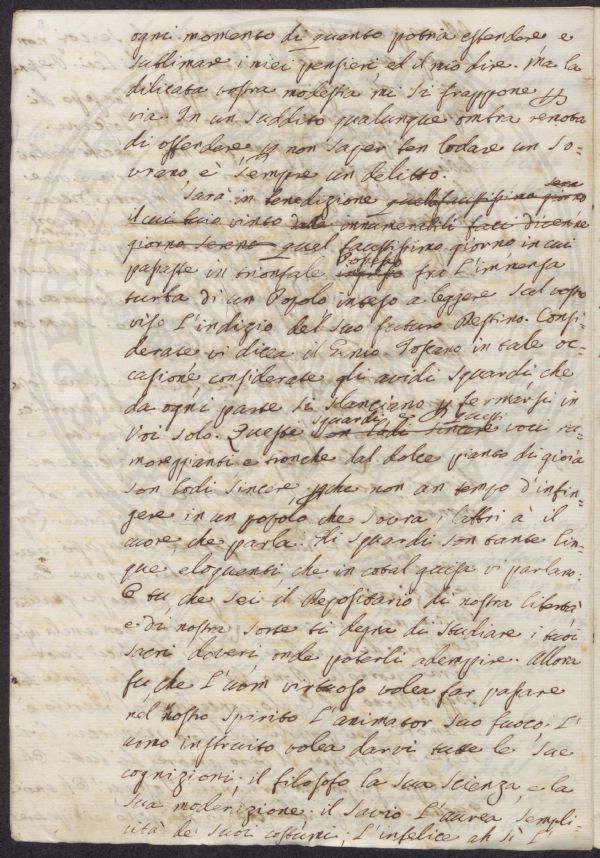 ogni momento di quanto potria estendere e
sublimare i miei pensieri ed il mio dire. Ma la
dilicata vostra modestia mi si frappone
via. In un suddito qualunque ombra remota
di offendere o non saper ben lodare un So-
vrano è sempre un delitto.
Sarà in benedizione quel faustissimo giorno
il cui vinto dalle innumerabili faci divenne
giorno sereno quel faustissimo giorno in cui
passaste in trionfale fra l'immensa
turba di un Popolo inteso a leggere sul vostro
viso l'indizio del suo futuro Destino. Consi-
derate vi dicea il Genio Toscano in tale oc-
casione considerate gli avidi sguardi che
da ogni parte si slanciano p fermarsi in
Voi solo. Queste son lodi sincere voci ru-
moreggianti e tronche dal dolce pianto di gioia
son lodi sincere, pche non an tempo d'infin-
gere in un popolo, che sovra i labbri à il
cuore che parla. Gli sguardi son tante lin-
gue eloquenti che in cotal guisa vi parlano
O tu, che sei il Depositario di nostra libertà
e di nostra sorte ti degna di studiare i tuoi
sacri doveri onde poterli adempire. Allora
fu che l'uom virtuoso volea far passare
nel vostro spirito l'animator suo fuoco. L'
uomo instruito volea darvi tutte le sue
cognizioni. il filosofo la sua scienza e la
sua moderazione. il savio l'aurea sempli-
cità de' suoi costumi, l'infelice ah sì l'